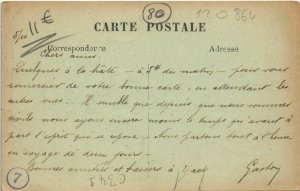 11€
80
17 0 864
CARTE POSTALE
Correspondance
Adresse
Chers amis,
à la hâte – à 5h du matin – pour vous
remercier de votre bonne carte, en attendant les
autres vues. Il semble que depuis que nous sommes
nous ayons encore moins le temps qu'avant à
part l'esprit qui se repose. Nous partons tout à l'heure
en voyage de deux jours.
Bonnes amitiés et baisers à
Gaston
7